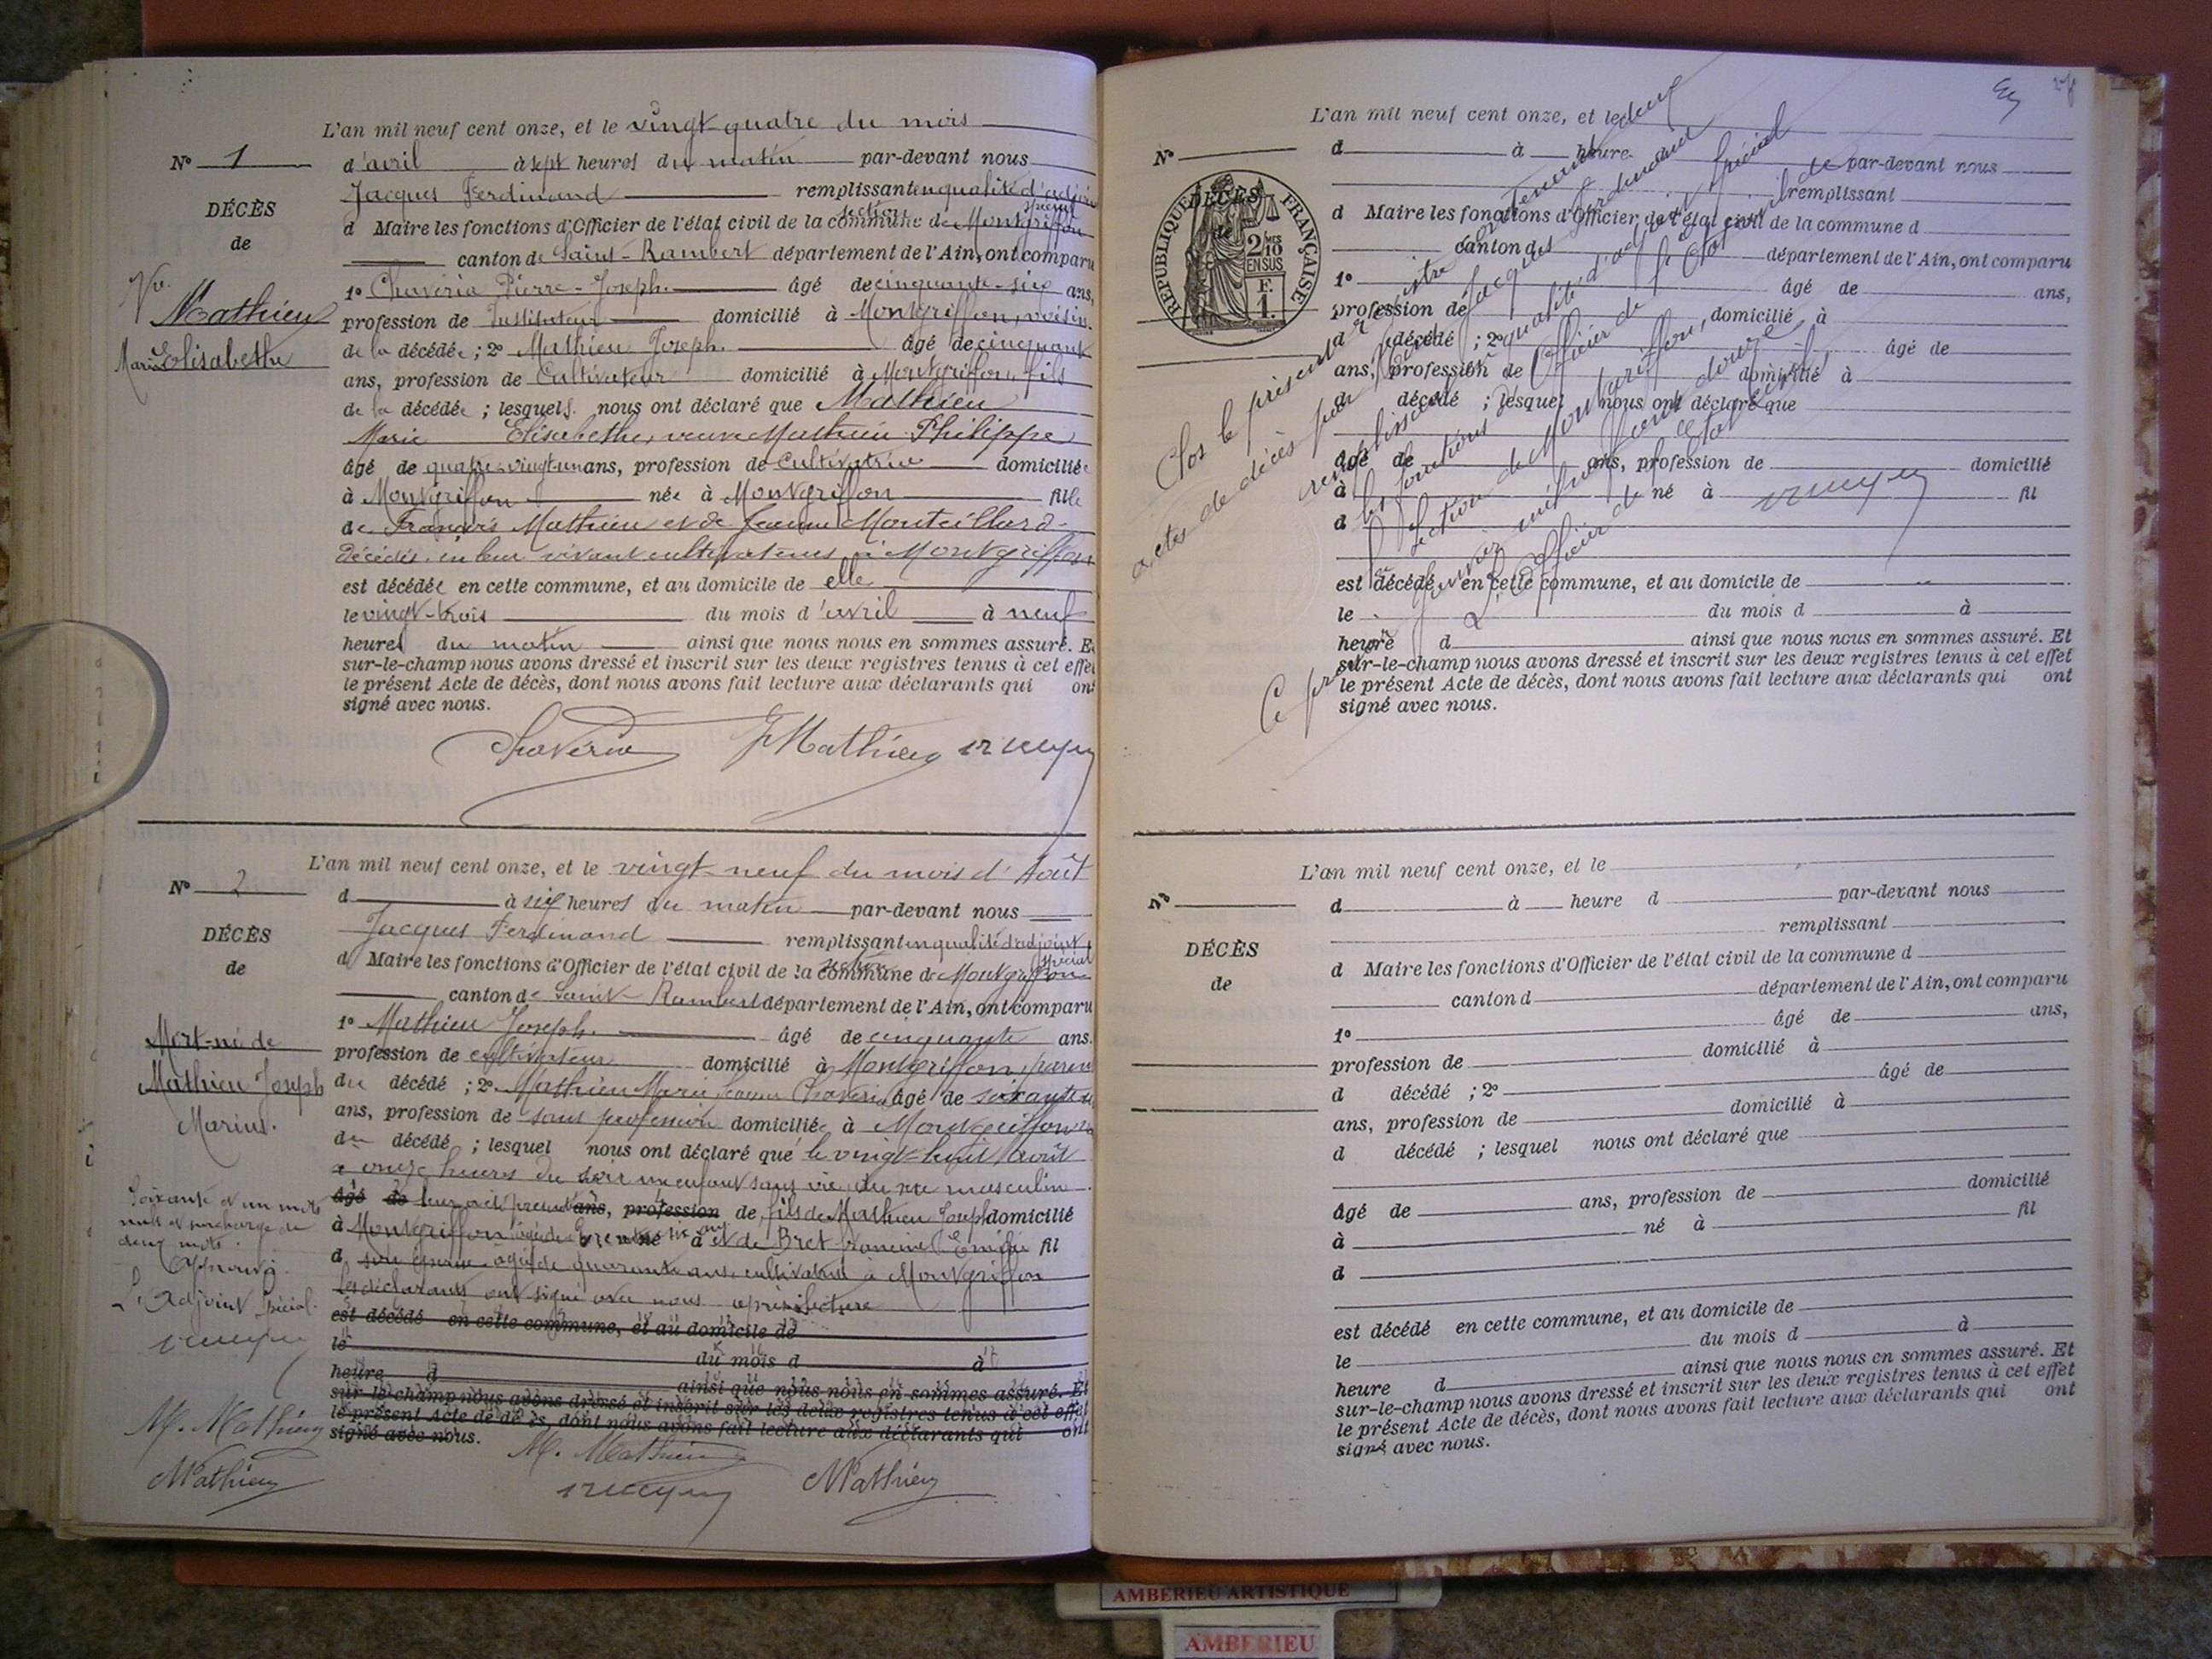 L'an mil neuf cent onze, et le vingt-quatre du mois
N° 1
d'avril à sept heures du matin par-devant nous
Jacques Ferdinand remplissant en qualité d'adjoint spécial
DÉCÈS
d Maire les fonctions d'Officier de l'état civil de la commune section de Montgriffon
de
canton de Saint-Rambert département de l'Ain, ont comparu
Vve
1° Chaveria Pierre-Joseph. âgé de cinquante-six ans,
Mathieu
profession de Instituteur domicilié à Montgriffon, voisin.
Marie Elisabethe
de la décédée ; 2° Mathieu Joseph. âgé de cinquante
ans, profession de Cultivateur domicilié à Montgriffon, fils
de la décédée ; lesquels nous ont déclaré que Mathieu
Marie Elisabethe, veuve Mathieu Philippe,
âgé de quatre-vingt-un ans, profession de Cultivatrice domiciliée
à Montgriffon née à Montgriffon fille
de François Mathieu et de Jeanne Monteillard
décédés, en leur vivant cultivateurs à Montgriffon
est décédée en cette commune, et au domicile de elle
le vingt-trois du mois d'avril à neuf
heures du matin ainsi que nous nous en sommes assuré. Et
sur-le-champ nous avons dressé et inscrit sur les deux registres tenus à cet effet
le présent Acte de décès, dont nous avons fait lecture aux déclarants qui ont
signé avec nous.
Chaveria J Mathieu
L'an mil neuf cent onze, et le vingt-neuf du mois d'Août
N° 2
d à six heures du matin par-devant nous
Jacques Ferdinand remplissant en qualité d'adjoint spécial
DÉCÈS
d Maire les fonctions d'Officier de l'état civil de la commune section de Montgriffon
de
canton de Saint-Rambert département de l'Ain, ont comparu
Mort-né de
1° Mathieu Joseph. âgé de cinquante ans.
profession de cultivateur domicilié à Montgriffon, parent
Mathieu Joseph
du décédé ; 2° Mathieu Marie, Chaveria âgé de soixante
Marius.
ans, profession de sans profession domiciliée à Montgriffon
du décédé ; lesquel nous ont déclaré que le vingt-huit août
à onze heures du soir un enfant sans vie, du sexe masculin
âgé de leur a été présenté ans, profession de fils de Mathieu Joseph domicilié
à Montgriffon âgé de né à et de Bret Francine Emilie fil
d son épouse âgée de quarante ans, cultivateurs à Montgriffon
Les déclarants ont signé avec nous après lecture
est décédé en cette commune, et au domicile de
le du mois d à
heure d ainsi que nous nous en sommes assuré. Et
sur-le-champ nous avons dressé et inscrit sur les deux registres tenus à cet effet
le présent Acte de décès, dont nous avons fait lecture aux déclarants qui ont
signé avec nous.
Soixante et un mots
nuls et surcharge de
deux mots.
Approuvé.
L'Adjoint spécial.
M. Mathieu
Mathieu
M. Mathieu
Mathieu
L'an mil neuf cent onze, et le
N°
d à heure d par-devant nous
remplissant
DÉCÈS
de
RÉPUBLIQUE FRANÇAISE
2/10 MES
EN SUS
F.
1.
d Maire les fonctions d'Officier de l'état civil de la commune d
canton d département de l'Ain, ont comparu
1° âgé de ans,
profession de domicilié à
d décédé ; 2° âgé de
ans, profession de domicilié à
d décédé ; lesquel nous ont déclaré que
âgé de ans, profession de domicilié
à né à fil
d
est décédé en cette commune, et au domicile de
le du mois d à
heure d ainsi que nous nous en sommes assuré. Et
sur-le-champ nous avons dressé et inscrit sur les deux registres tenus à cet effet
le présent Acte de décès, dont nous avons fait lecture aux déclarants qui ont
signé avec nous.
Clos le présent registre contenant deux
actes de décès par Jacques Ferdinand
remplissant en qualité d'adjoint spécial
les fonctions d'Officier de l'Etat civil de
la section de Montgriffon,
Ce premier janvier mil neuf cent douze
L'Officier de l'Etat civil,
L'an mil neuf cent onze, et le
N°
d à heure d par-devant nous
remplissant
DÉCÈS
d Maire les fonctions d'Officier de l'état civil de la commune d
de
canton d département de l'Ain, ont comparu
1° âgé de ans,
profession de domicilié à
d décédé ; 2° âgé de
ans, profession de domicilié à
d décédé ; lesquel nous ont déclaré que
âgé de ans, profession de domicilié
à né à fil
d
est décédé en cette commune, et au domicile de
le du mois d à
heure d ainsi que nous nous en sommes assuré. Et
sur-le-champ nous avons dressé et inscrit sur les deux registres tenus à cet effet
le présent Acte de décès, dont nous avons fait lecture aux déclarants qui ont
signé avec nous.
AMBERIEU ARTISTIQUE
AMBERIEU